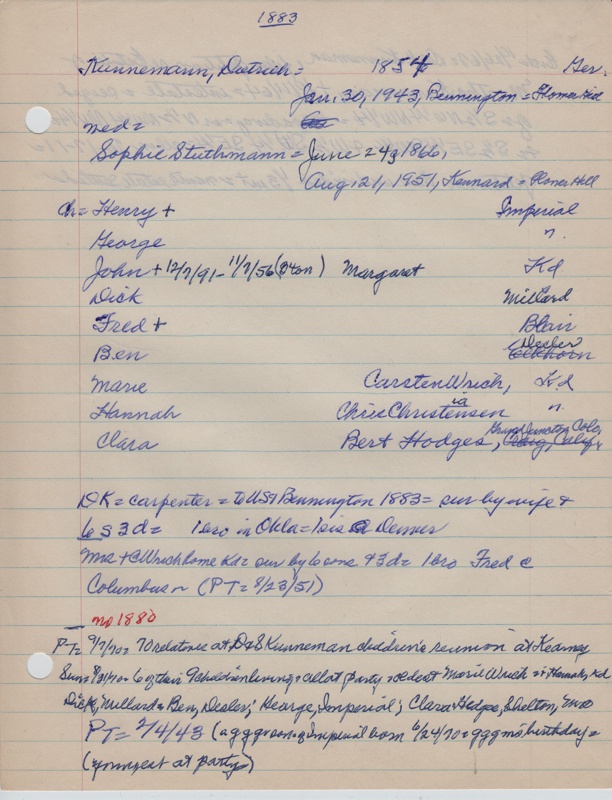 1883
Kunnemann, Dietrich = 1854 Ger.
Jan. 30, 1943, Bennington = Flower Hill
med =
Sophie Stuthmann = June 24, 1866,
Aug. 21, 1951, Kennard = Flower Hill
ch = Henry + Imperial
George "
John + 12/7/91 - 11/7/56 Margaret Kd
Dick Millard
Fred + Blair
Ben Desler Elkhorn
Marie Carsten Wrich, Kd
Hannah Chris Christensen "
Clara Bert Hodges, Grand Junction Colo,
DK = carpenter = to USA Bennington 1883 = sur by wife +
6 s 3 d = 1 bro in Okla = 1 sis Denver
Mrs + C Wrich home Kd = sur by 6 sons + 3 d = 1 bro Fred @
Columbus (PT = 8/23/51)
no 1880
PT = 9/7/70 = 70 relatives at D&S Kunneman children's reunion at Kearney
Sun = 8/31/70 = 6 of their 9 children living = all at party = oldest Marie Wrich + Hannah, Kd
Dick, Millard = Ben, Desler; George, Imperial; Clara Hodges, Shelton,
PT = 2/4/43 (a gggson of Imperial born 6/24/70 = gggm's birthday =
(youngest at party)